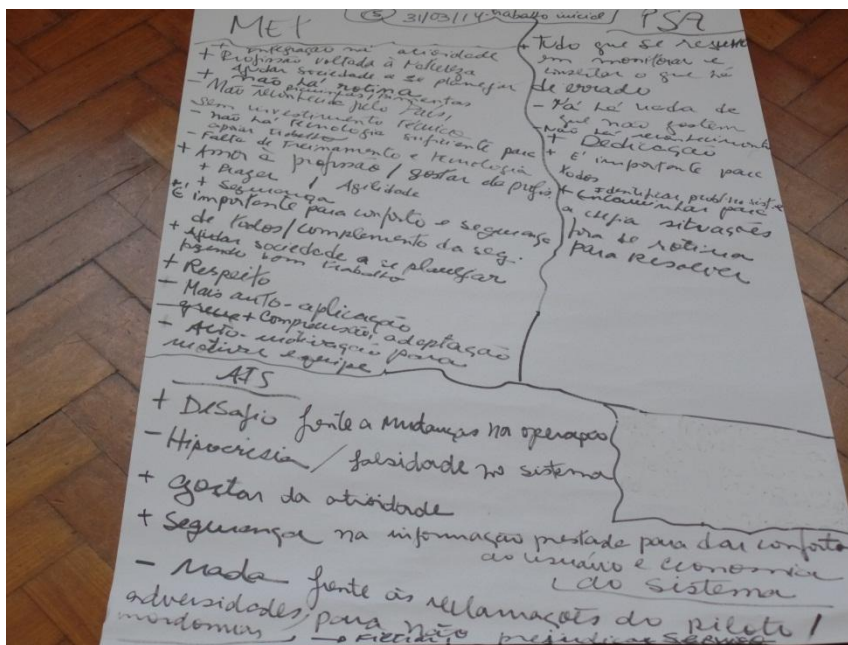 (5) 31/03/14 - trabalho inicial
MET
+ Integração na atividade
+ Profissão voltada à natureza
+ Ajudar sociedade a se planejar
+ não há rotina
- Não reconhecido pelo País,
sem investimento técnico
- não há tecnologia suficiente para
apoiar trabalho
- Falta de treinamento e tecnologia
+ Amor à profissão / gostar da profis
+ Prazer / Agilidade
+ Segurança
É importante para conforto e segurança
de todos / complemento da seg.
+ Ajudar sociedade a se planejar
fazendo bom trabalho
+ Respeito
- Mais auto-aplicação
+ Compreensão, adaptação
- Auto-motivação para
motivar equipe
PSA
+ Tudo que se resume
em monitorar e
consertar o que há
de errado
- Não há nada de
que não gostem
- Não há reconhecimento
+ Dedicação
+ É importante para
todos
+ Identificar probl. no sist. e
+ Encaminhar para
a chefia situações
fora de rotina
para resolver
ATS
+ Desafio frente a mudanças na operação
- Hipocrisia / falsidade no sistema
+ gostar da atividade
+ Segurança na informação prestada para dar conforto
ao usuário e economia
do sistema
- Nada frente às reclamações do piloto /
adversidades, para não prejudicar serviço
mordomias